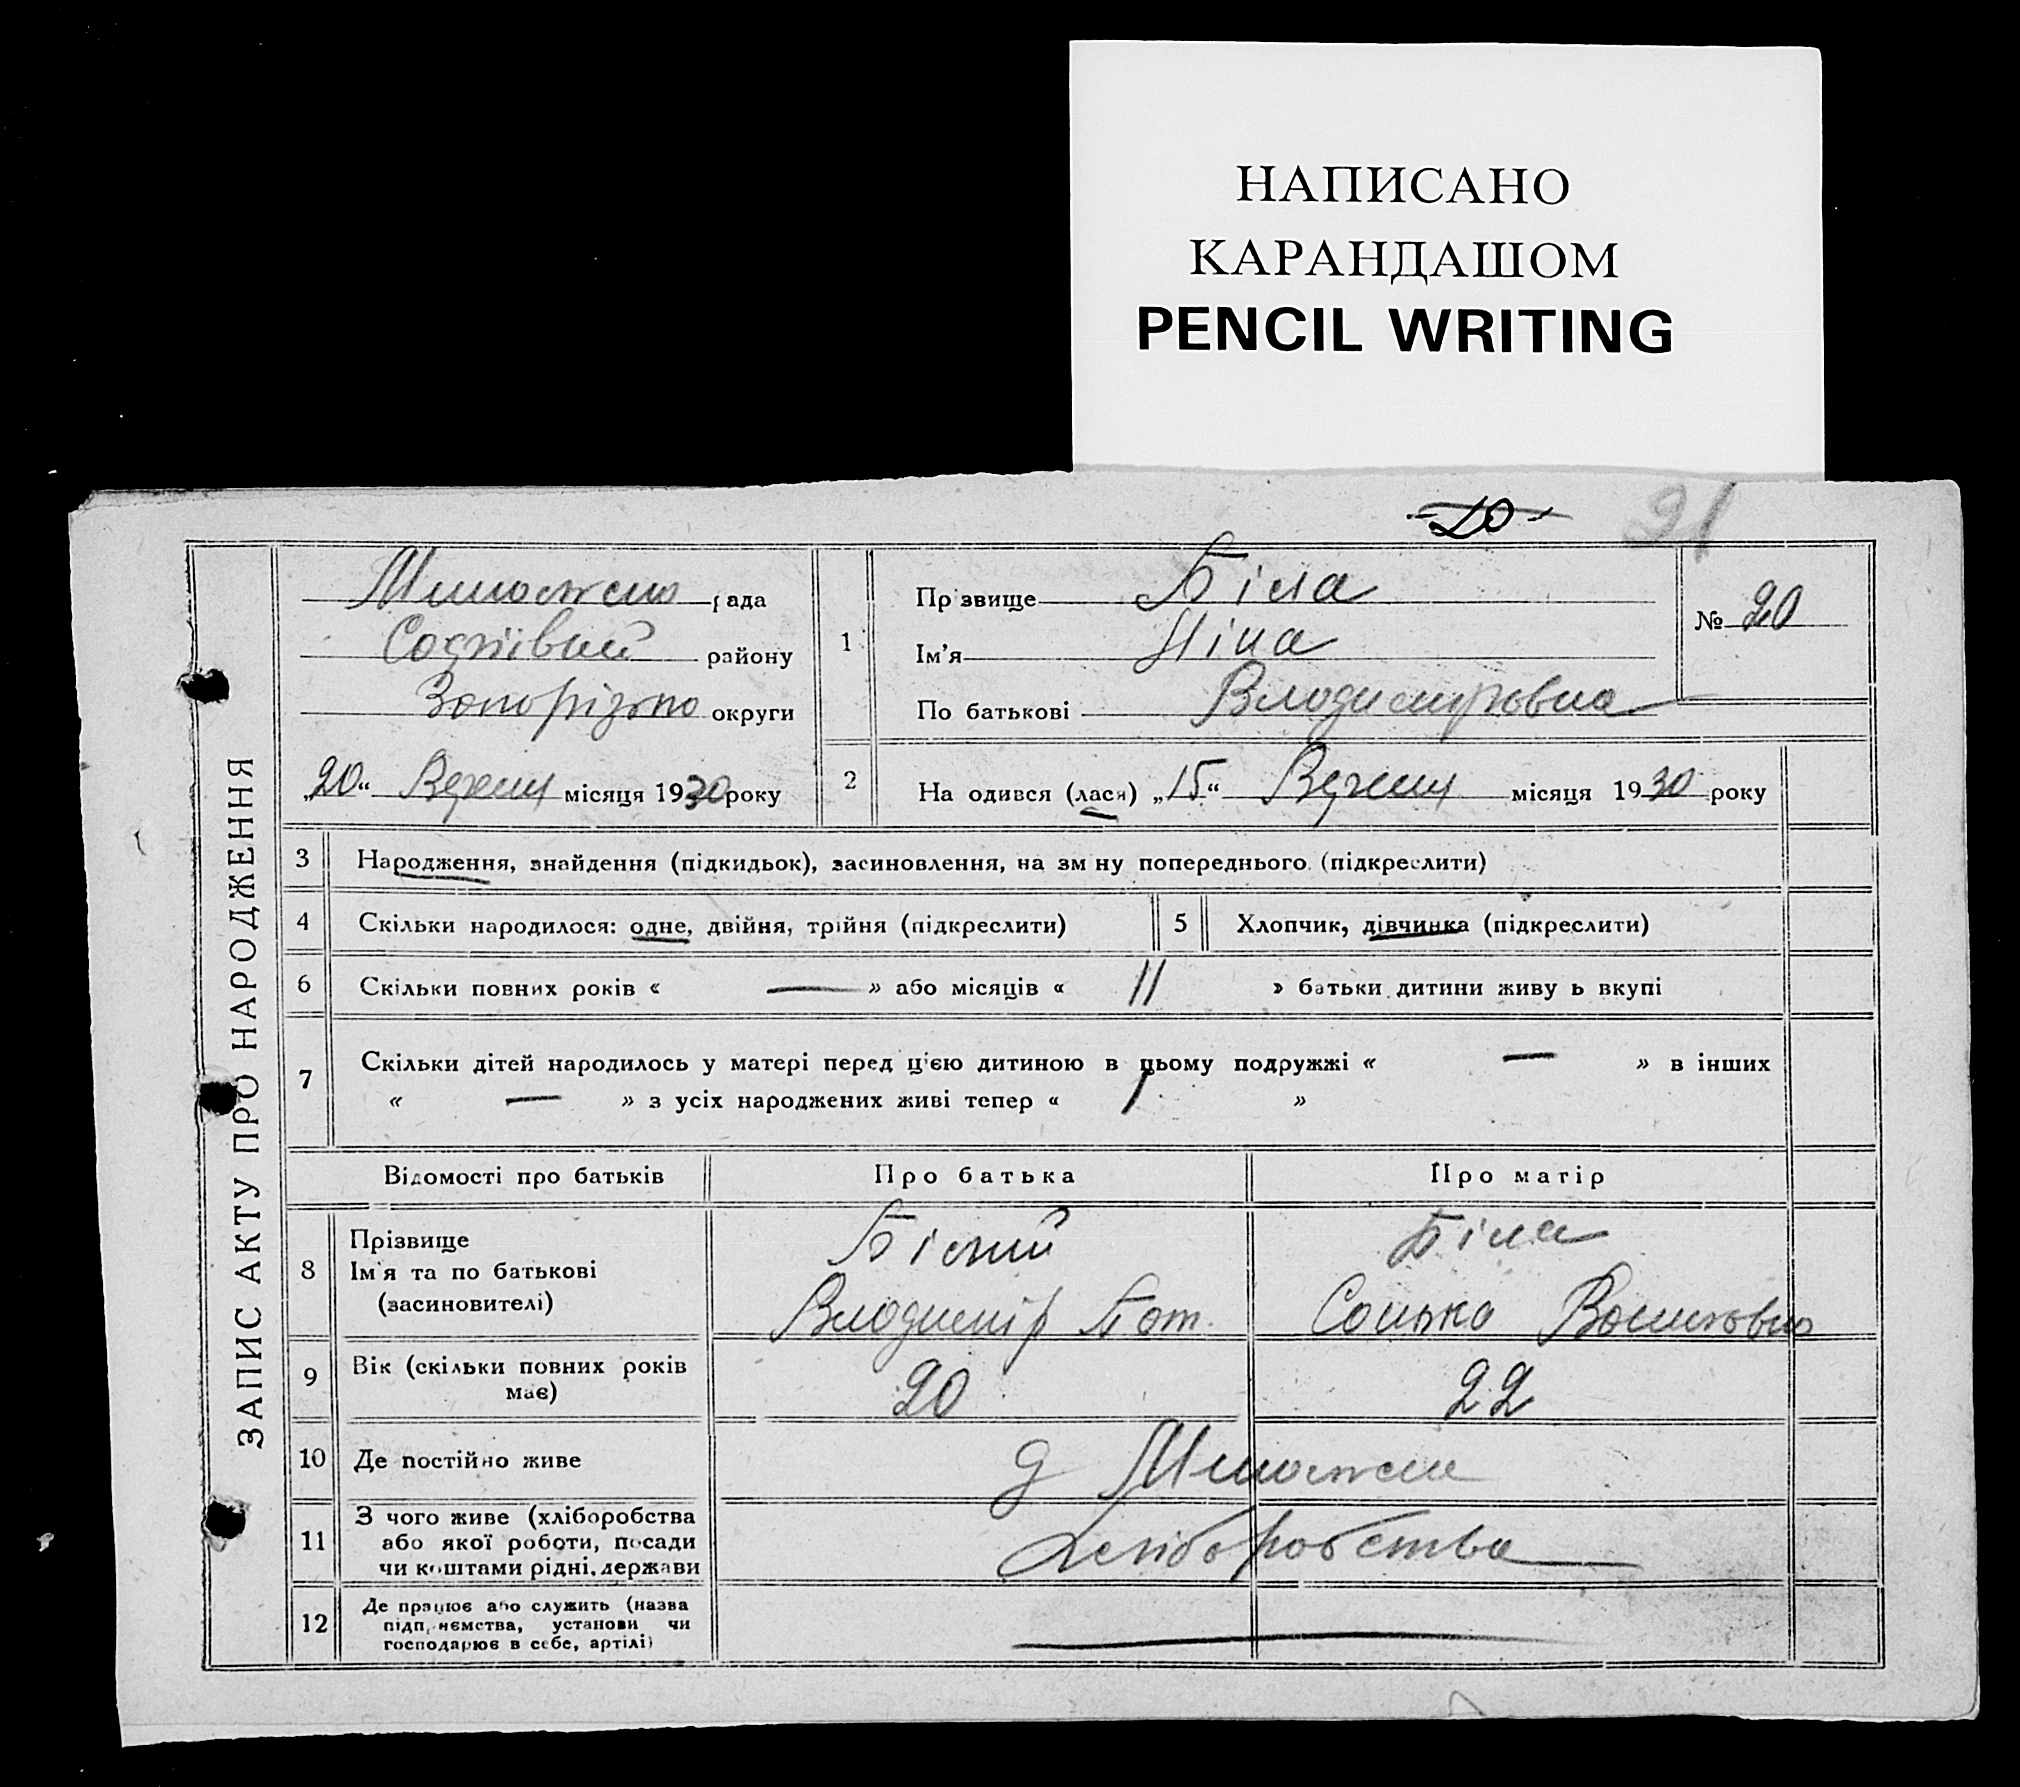 НАПИСАНО
КАРАНДАШОМ
PENCIL WRITING
-20- 21
ЗАПИС АКТУ ПРО НАРОДЖЕННЯ
рада
району
округи
„20“ Вересня місяця 1930 року
1
Прізвище Біла
Ім’я Ніна
По батькові Владимировна
№ 20
2 На одився (лася) „15“ Вересня місяця 1930 року
3 Народження, знайдення (підкидьок), засиновлення, на зм ну попереднього (підкреслити)
4 Скільки народилося: одне, двійня, трійня (підкреслити) 5 Хлопчик, дівчинка (підкреслити)
6 Скільки повних років « — » або місяців « 11 » батьки дитини живу ь вкупі
7 Скільки дітей народилось у матері перед цією дитиною в цьому подружжі « — » в інших
« — » з усіх народжених живі тепер « 1 »
Відомості про батьків Про батька Про матір
8 Прізвище
Ім’я та по батькові
(засиновителі)
Білий
Владимір
Біла
Сонька
9 Вік (скільки повних років
має)
20 22
10 Де постійно живе
11 З чого живе (хліборобства
або якої роботи, посади
чи коштами рідні, держави
Хліборобства
12 Де працює або служить (назва
підприємства, установи чи
господарює в себе, артілі)